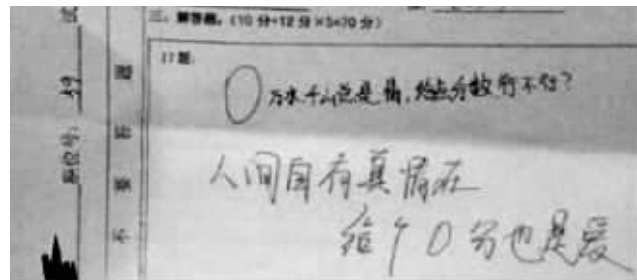 三、解答题。(10分+12分×5=70分)
17题.
万水千山总是情,给点分数行不行?
人间自有真情在
给个0分也是爱
座位号:
题
答
要
不